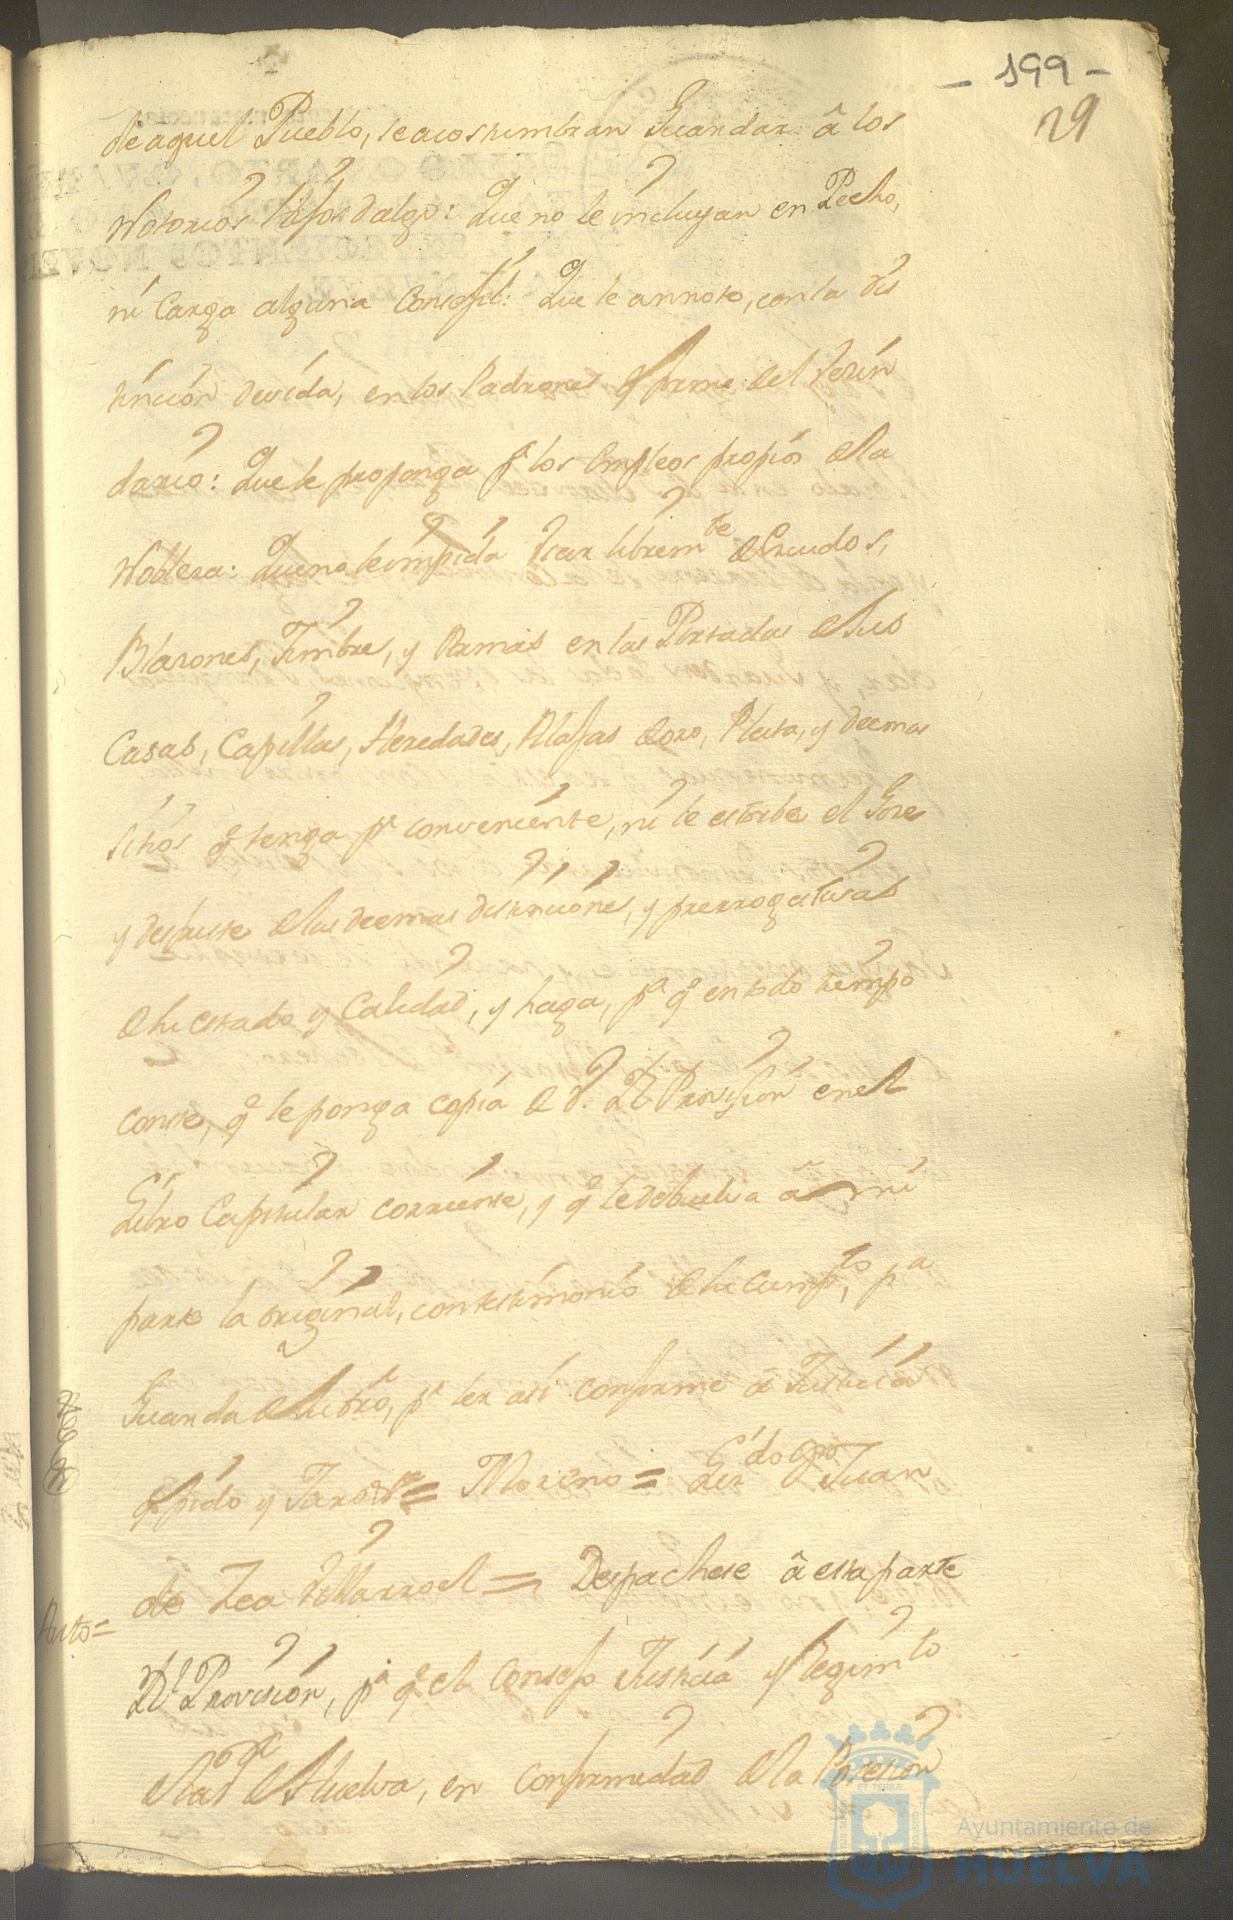 - 199 -
29
de aquel Pueblo, se acostumbran Guardar â los
Notorios hijos dalgo: Que no le incluyan en Pecho,
ni Carga alguna Consejil: Que le annote, con la dis
tincion devida, en los Padrones q forme del Vezin
dario: Que le proponga pª los Empleos propios de la
Nobleza: Que no le impida Usar librem.te de Escudos,
Blazones, Timbres, y Armas en las Portadas de sus
Casas, Capillas, Heredades, Alajas de oro, Plata, y demas
sitios q.e tenga pr conveniente, ni le estorbe el Goze
y desfrute de las demas distinciones, y prerrogativas
de su estado y Calidad, y haga, p.a q.e en todo tiempo
conste, q.e se ponga copia de d.ha Rl Provision en el
Libro Capitular corriente, y q.e se debuelva â mi
parte la original, con testimonio de su cump.to, p.a
Guarda de su dro, pr ser asi conforme â Justicia
q pido y Juro = Moreno = Liz.do Dn Juan
de Zea Villarroel = Despachese â esta parte
Auto =
Rl Provision, p.a q.e el Consejo Justicia y Regim.to
de la V.a de Huelva, en Conformidad de la Posesion
Ayuntamiento de
HUELVA